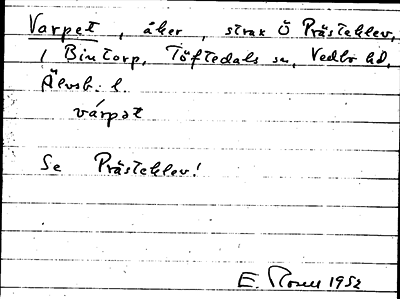 Varpet, åker, strax Ö Prästeklev,
i Bintorp, Töftedals sn, Vedbo hd,
Älvsb. l.
várpət
Se Prästeklev!
E. 1952